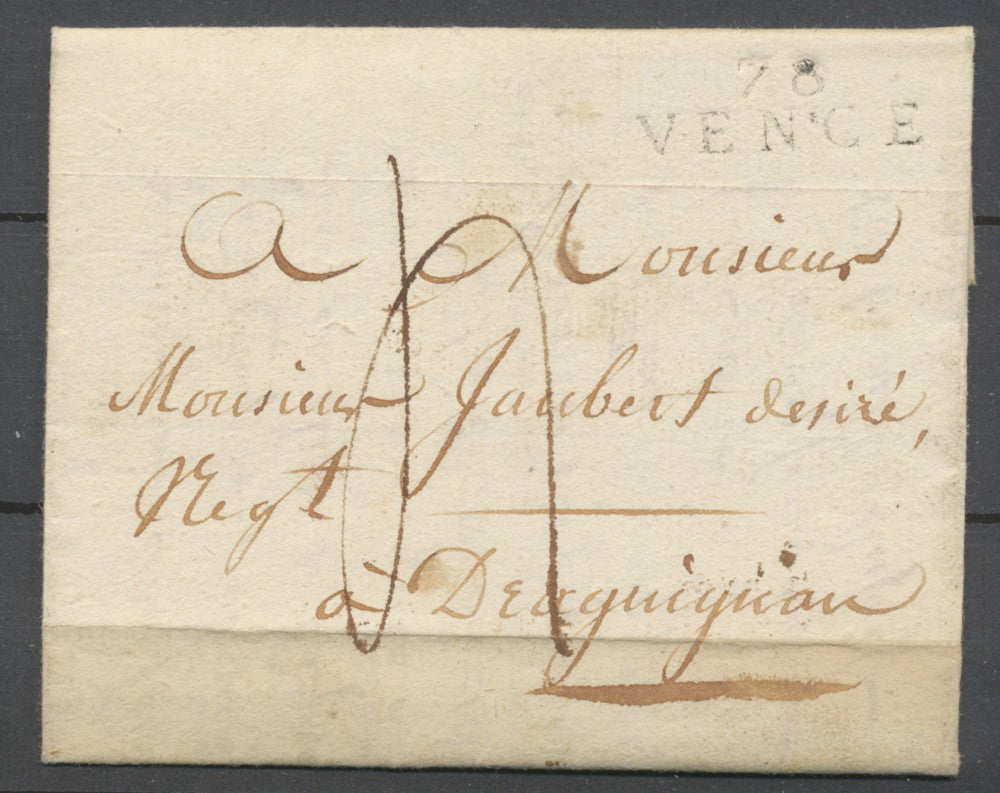 78
VENCE
A Monsieur
Monsieur Jaubert desiré,
Negt
à Draguignan